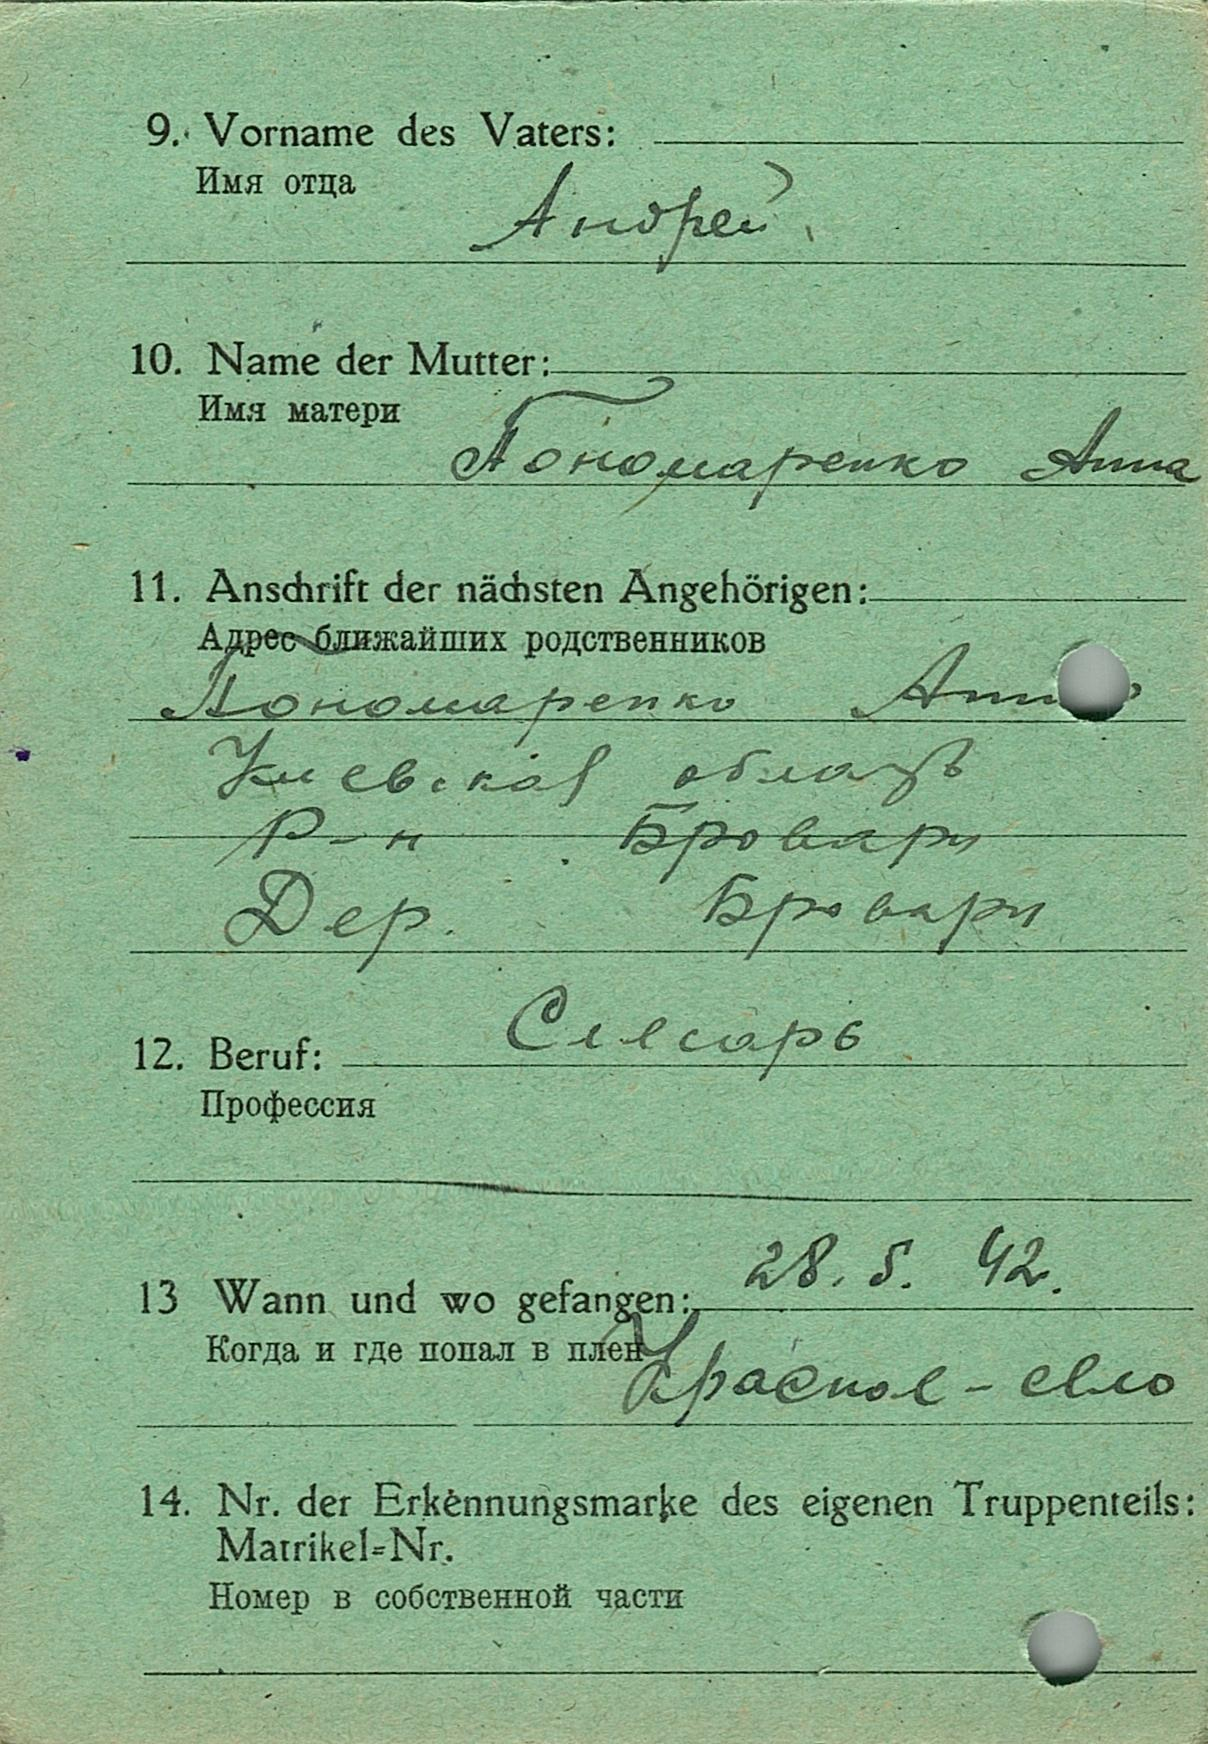 9. Vorname des Vaters:
Имя отца
Андрей
10. Name der Mutter:
Имя матери
Пономаренко Анна
11. Anschrift der nächsten Angehörigen:
Адрес ближайших родственников
Пономаренко
Киевская область
Р-н Бровари
Дер. Бровари
Слесарь
12. Beruf:
Профессия
28. 5. 42.
13 Wann und wo gefangen:
Когда и где попал в плен
Красное - село
14. Nr. der Erkennungsmarke des eigenen Truppenteils:
Matrikel=Nr.
Номер в собственной части